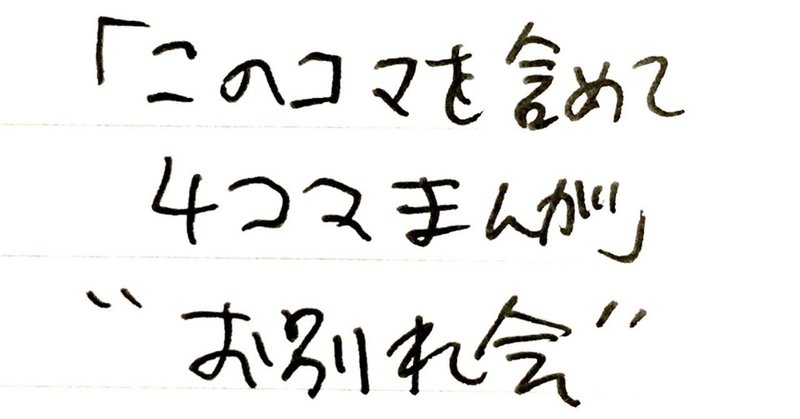 「このコマを含めて
4コマまんが」
“お別れ会”